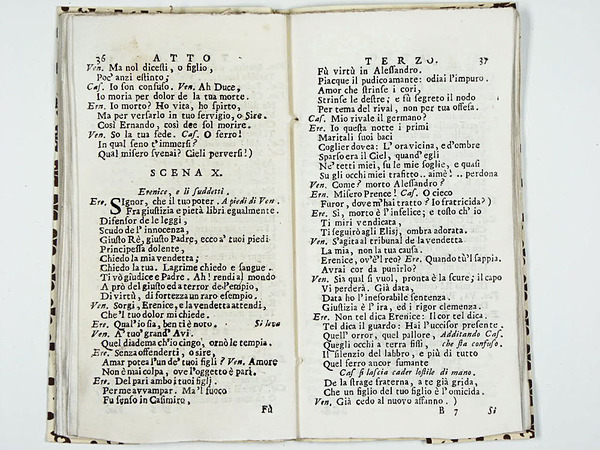 36 ATTO
Ven. Ma nol dicesti, o figlio,
Poc' anzi estinto;
Cas. Io son confuso. Ven. Ah Duce,
Io moria per dolor de la tua morte.
Ern. Io morto? Ho vita, ho spirto,
Ma per versarlo in tuo servigio, o Sire.
Così Ernando, così dee sol morire.
Ven. So la tua fede. Cas. O ferro!
In qual seno t'immersi?
Qual misero svenai? Cieli perversi!)
SCENA X.
Erenice, e li suddetti.
Ere. SIgnor, che il tuo poter. A piedi di Ven.
Fra giustizia e pietà libri egualmente.
Difensor de le leggi,
Scudo de l' innocenza,
Giusto Rè, giusto Padre, ecco a' tuoi piedi
Principessa dolente,
Chiedo la mia vendetta;
Chiedo la tua. Lagrime chiedo e sangue.
Ti vò giudice e Padre. Ah! rendi al mondo
A prò del giusto ed a terror de l'empio,
Di virtù, di fortezza un raro esempio.
Ven. Sorgi, Erenice, e la vendetta attendi,
Che 'l tuo dolor mi chiede.
Ere. Qual' io sia, ben ti è noto. Si leva
Ven. A' tuo' grand' Avi.
Quel diadema ch'io cingo, ornò le tempia.
Ere. Senza offenderti, o sire,
Amar potea l'un de' tuoi figli? Ven. Amore
Non è mai colpa, ove l'oggetto è pari.
Ere. Del pari ambo i tuoi figlj
Per me avvampar. Ma 'l fuoco
Fu senso in Casimiro,
Fù
TERZO. 37
Fù virtù in Alessandro.
Piacque il pudico amante: odiai l'impuro.
Amor che strinse i cori,
Strinse le destre; e fù segreto il nodo
Per tema del rival, non per tua offesa.
Cas. Mio rivale il germano?
Ere. Io questa notte i primi
Maritali suoi baci
Coglier dovea: L'ora vicina, ed'ombre
Sparso era il Ciel, quand' egli
Ne' tetti miei, su le mie soglie, e quasi
Su gli occhi miei trafitto.. aimè! .. perdona
Ven. Come? morto Alessandro?
Ern. Misero Prence! Cas. O cieco
Furor, dove m'hai tratto? Io fratricida?)
Ere. Sì, morto è l'infelice; e tosto ch' io
Ti miri vendicata,
Ti seguirò agli Elisj, ombra adorata.
Ven. S'agita al tribunal de la vendetta
La mia, non la tua causa.
Erenice, ov'è'l reo? Ere. Quando tù'l sappia.
Avrai cor da punirlo?
Ven. Sia qual si vuol, pronta è la scure; il capo
Vi perderà. Già data,
Data ho l'inesorabile sentenza.
Giustizia è l' ira, ed i rigor clemenza.
Ere. Non tel dica Erenice: Il cor tel dica.
Tel dica il guardo: Hai l'uccisor presente.
Quell' orror, quel pallore, Additando Cas.
Quegli occhi a terra fissi, che sta confuso.
Il silenzio del labbro, e più di tutto
Quel ferro ancor fumante
Cas si lascia cader lo stile di mano.
De la strage fraterna, a te già grida,
Che un figlio del tuo figlio è l'omicida.
Ven. Già cedo al nuovo affanno. )
B 7 Si